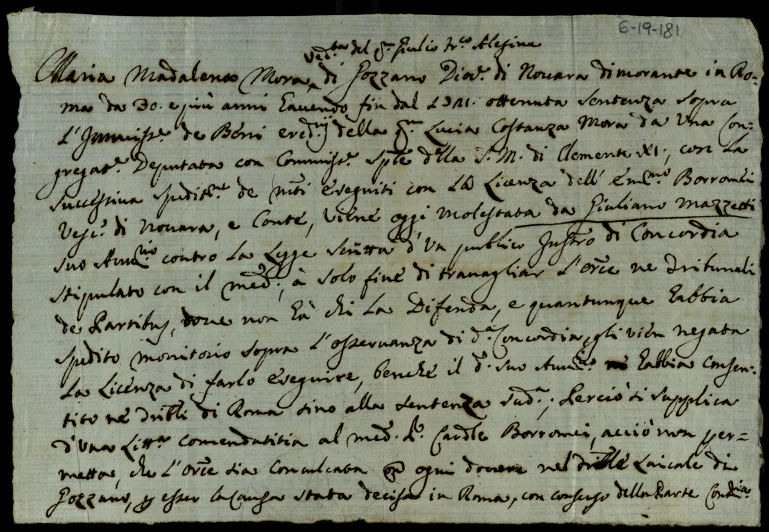 6-19-181
Ved.ª del q. Giulio Alesina
Maria Madalena Mora di Gozzano Dioc. di Novara dimorante in Ro-
ma da 30. e più anni havendo fin dal ottenuta sentenza sopra
l'Immiss.e de Beni ered.rij della q. Lucia Costanza Mora da Una Con-
gregat.e Deputata con Commiss.e Sple della S. M. di Clemente XI, con la
successiva spedit.ne de eseguiti con la Licenza dell' Em.mo Borromei
Vesc. di Novara, e Conte, viene oggi molestata da Giuliano Mazzetti
suo contro la Legge scritta d'Un publico Instro di Concordia
stipulato con il med., à solo fine di travagliar l'Orce ne Tribunali
de Partibus, dove non hà chi la Difenda, e quantunque habbia
spedito monitorio sopra l'osservanza di d.ª Concordia, gli vien negata
la Licenza di farlo eseguire, benche il d. suo habbia consen-
tito ne' di Roma sino alla sentenza sud.ª; Perciò si supplica
d'Una Litt.ra comendatitia al med. Cardle Borromei, acciò non per-
metta, che l'Orce sia Conculcata ogni dovere nel Laicale di
Gozzano, p esser la Causa stata decisa in Roma, con consenso della Parte